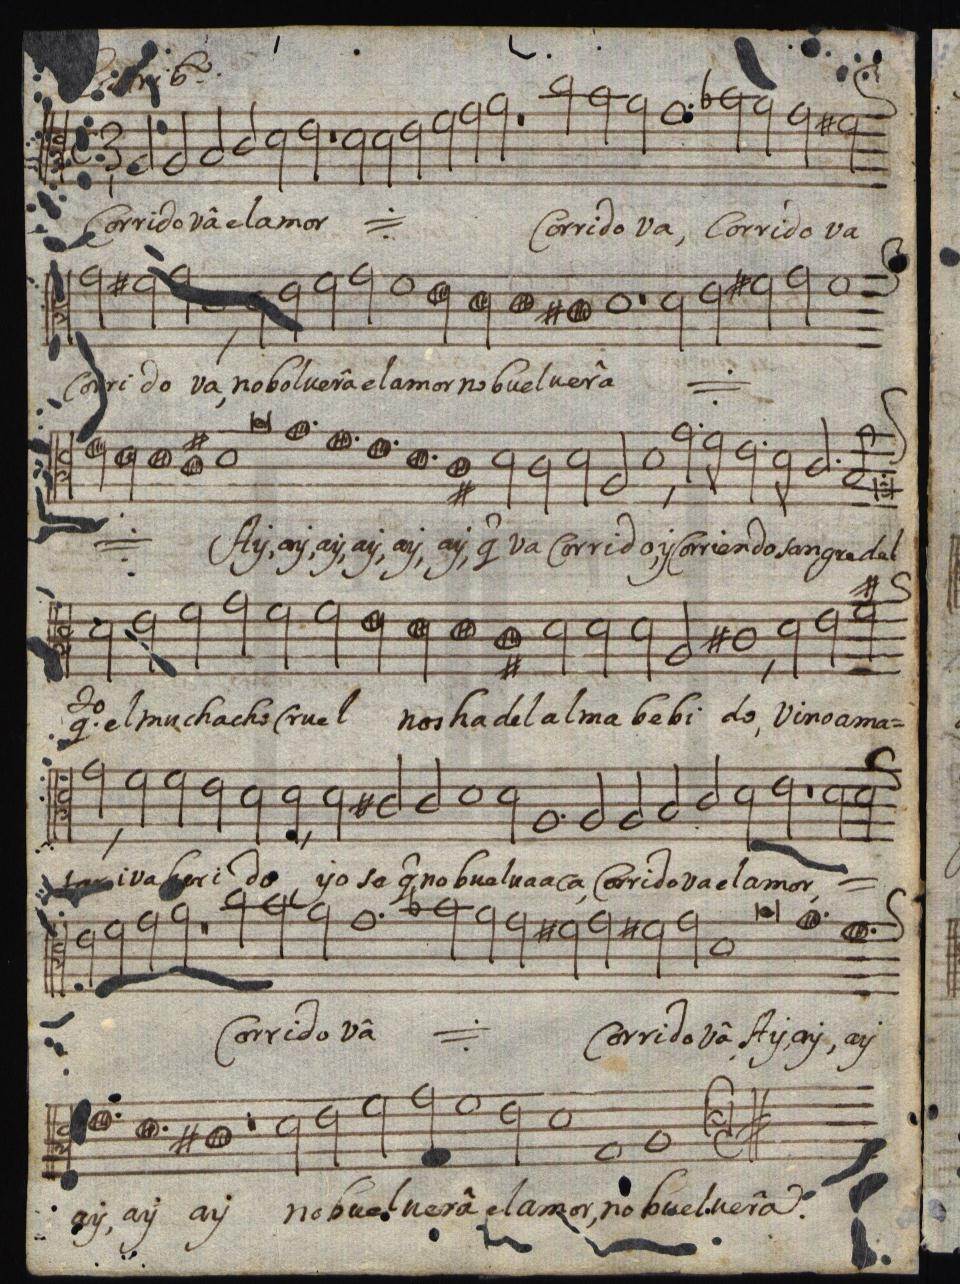 Corrido vâ el amor Corrido va, Corrido va
Corri do va, no boluerâ el amor no bueluerâ
Ay, ay, ay, ay, ay, ay, q̂ va Corrido, y Corriendo sangre del
do
q. el muchacho Cruel nos ha del alma bebi do, vino ama=
iva heri do yo se q̂ no buelua aca, Corrido va el amor,
Corrido vâ Corrido vâ, Ay, ay, ay
ay, ay ay no bueluerâ el amor, no bueluerâ.